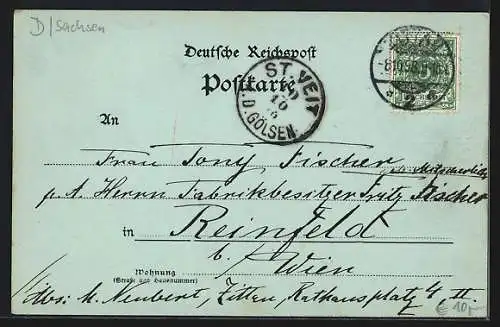 D/Sachsen
Deutsche Reichspost
Postkarte
ST. VEIT
10
D. GÖLSEN.
8 10 98
* 2 *
An
Frau Tony Fischer
p. A. Herrn Fabrikbesitzer Fritz Fischer
in Reinfeld
b/ Wien
Wohnung
(Straße und Hausnummer)
Abs: M. Neubert, Zittau, Rathausplatz 4, II.
€ 10,-